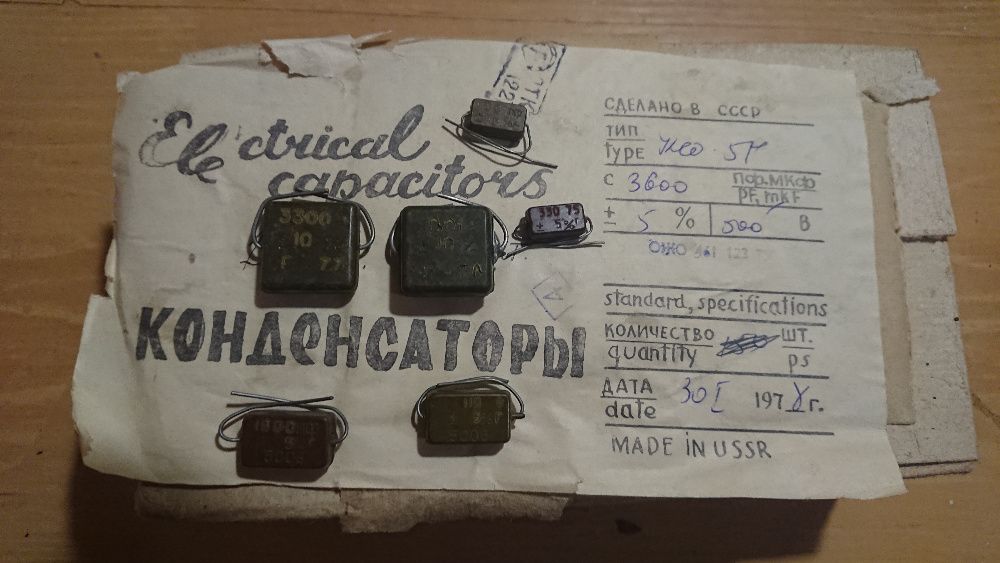 Electrical
capacitors
КОНДЕНСАТОРЫ
СДЕЛАНО В СССР
ТИП
type
С 3600 ПФ, МКФ
PF, mKF
± 5 % 500 В
ОЖО 461 123
standard, specifications
КОЛИЧЕСТВО ШТ.
quantity ps
ДАТА 30 I 1978 г.
date
MADE IN USSR
3300
10
Г 77
330 75
± 5%Г
500В
500В